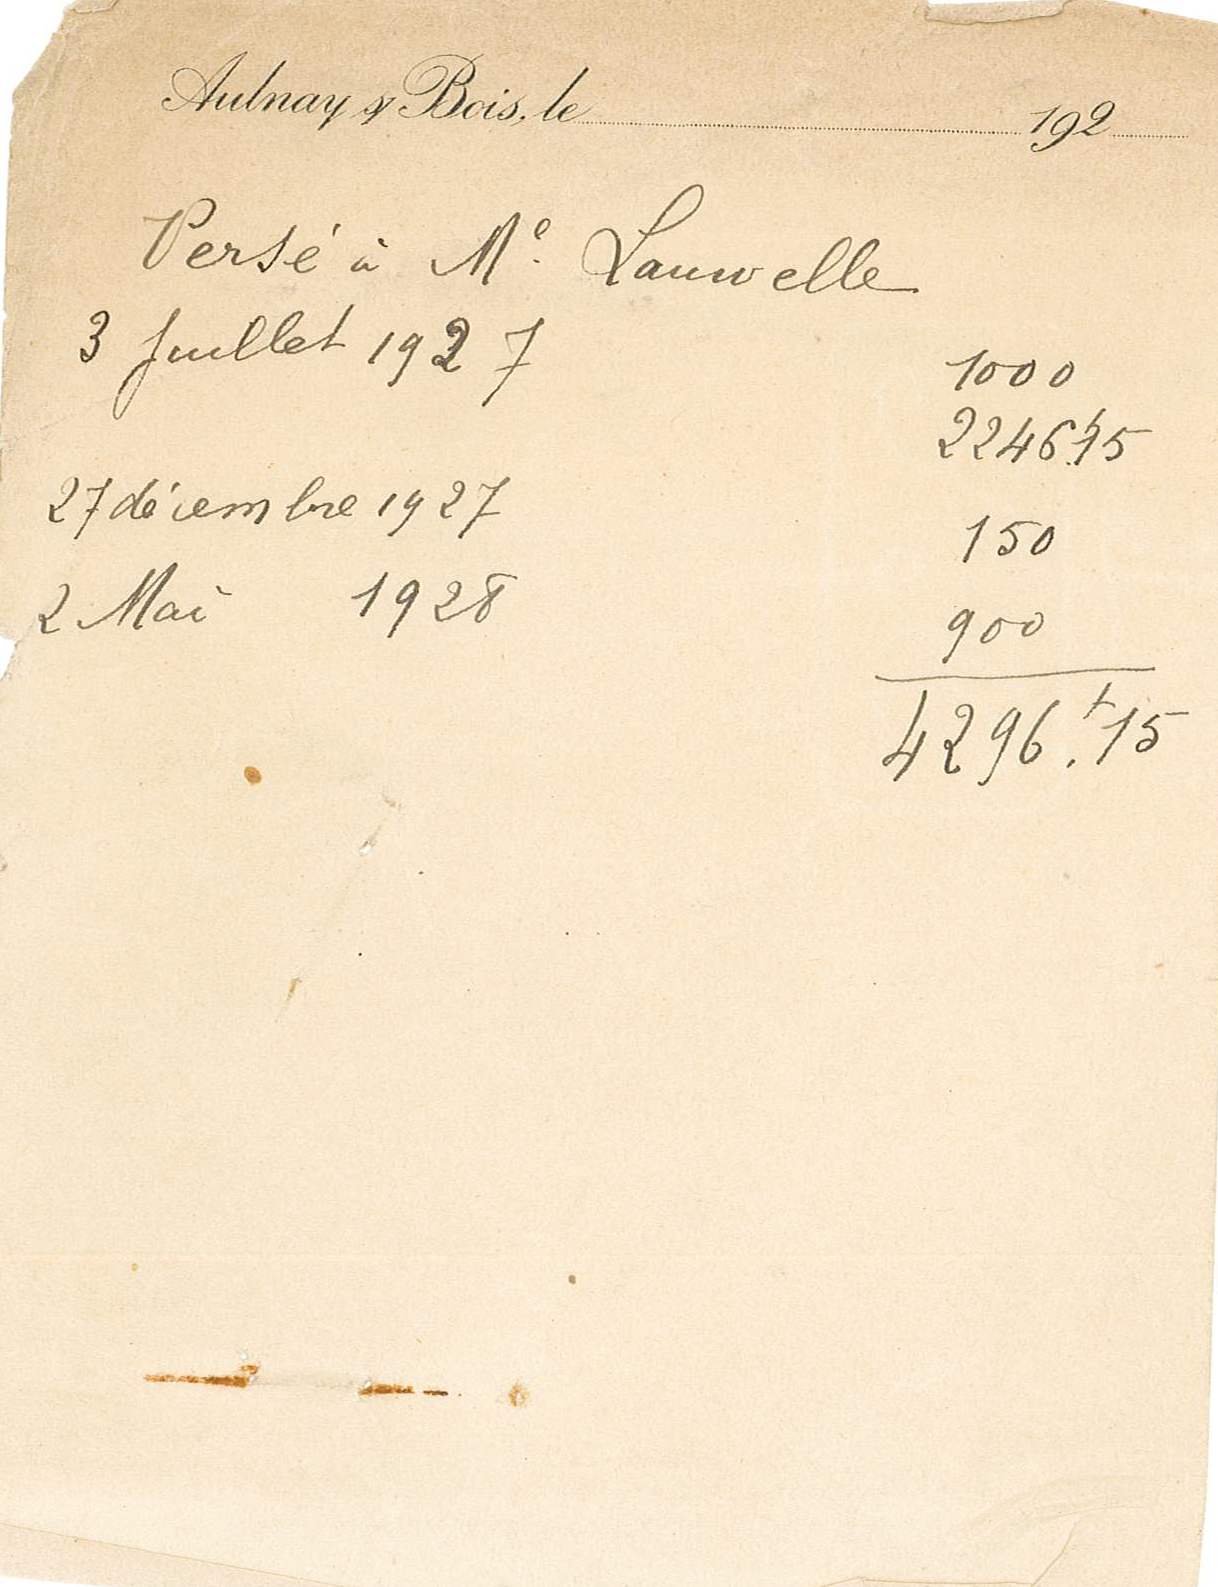 Aulnay s/ Bois, le 192
Versé à Me. Lauwelle
3 Juillet 1927 1000
2246.f15
27 décembre 1927 150
2 Mai 1928 900
4296.f15